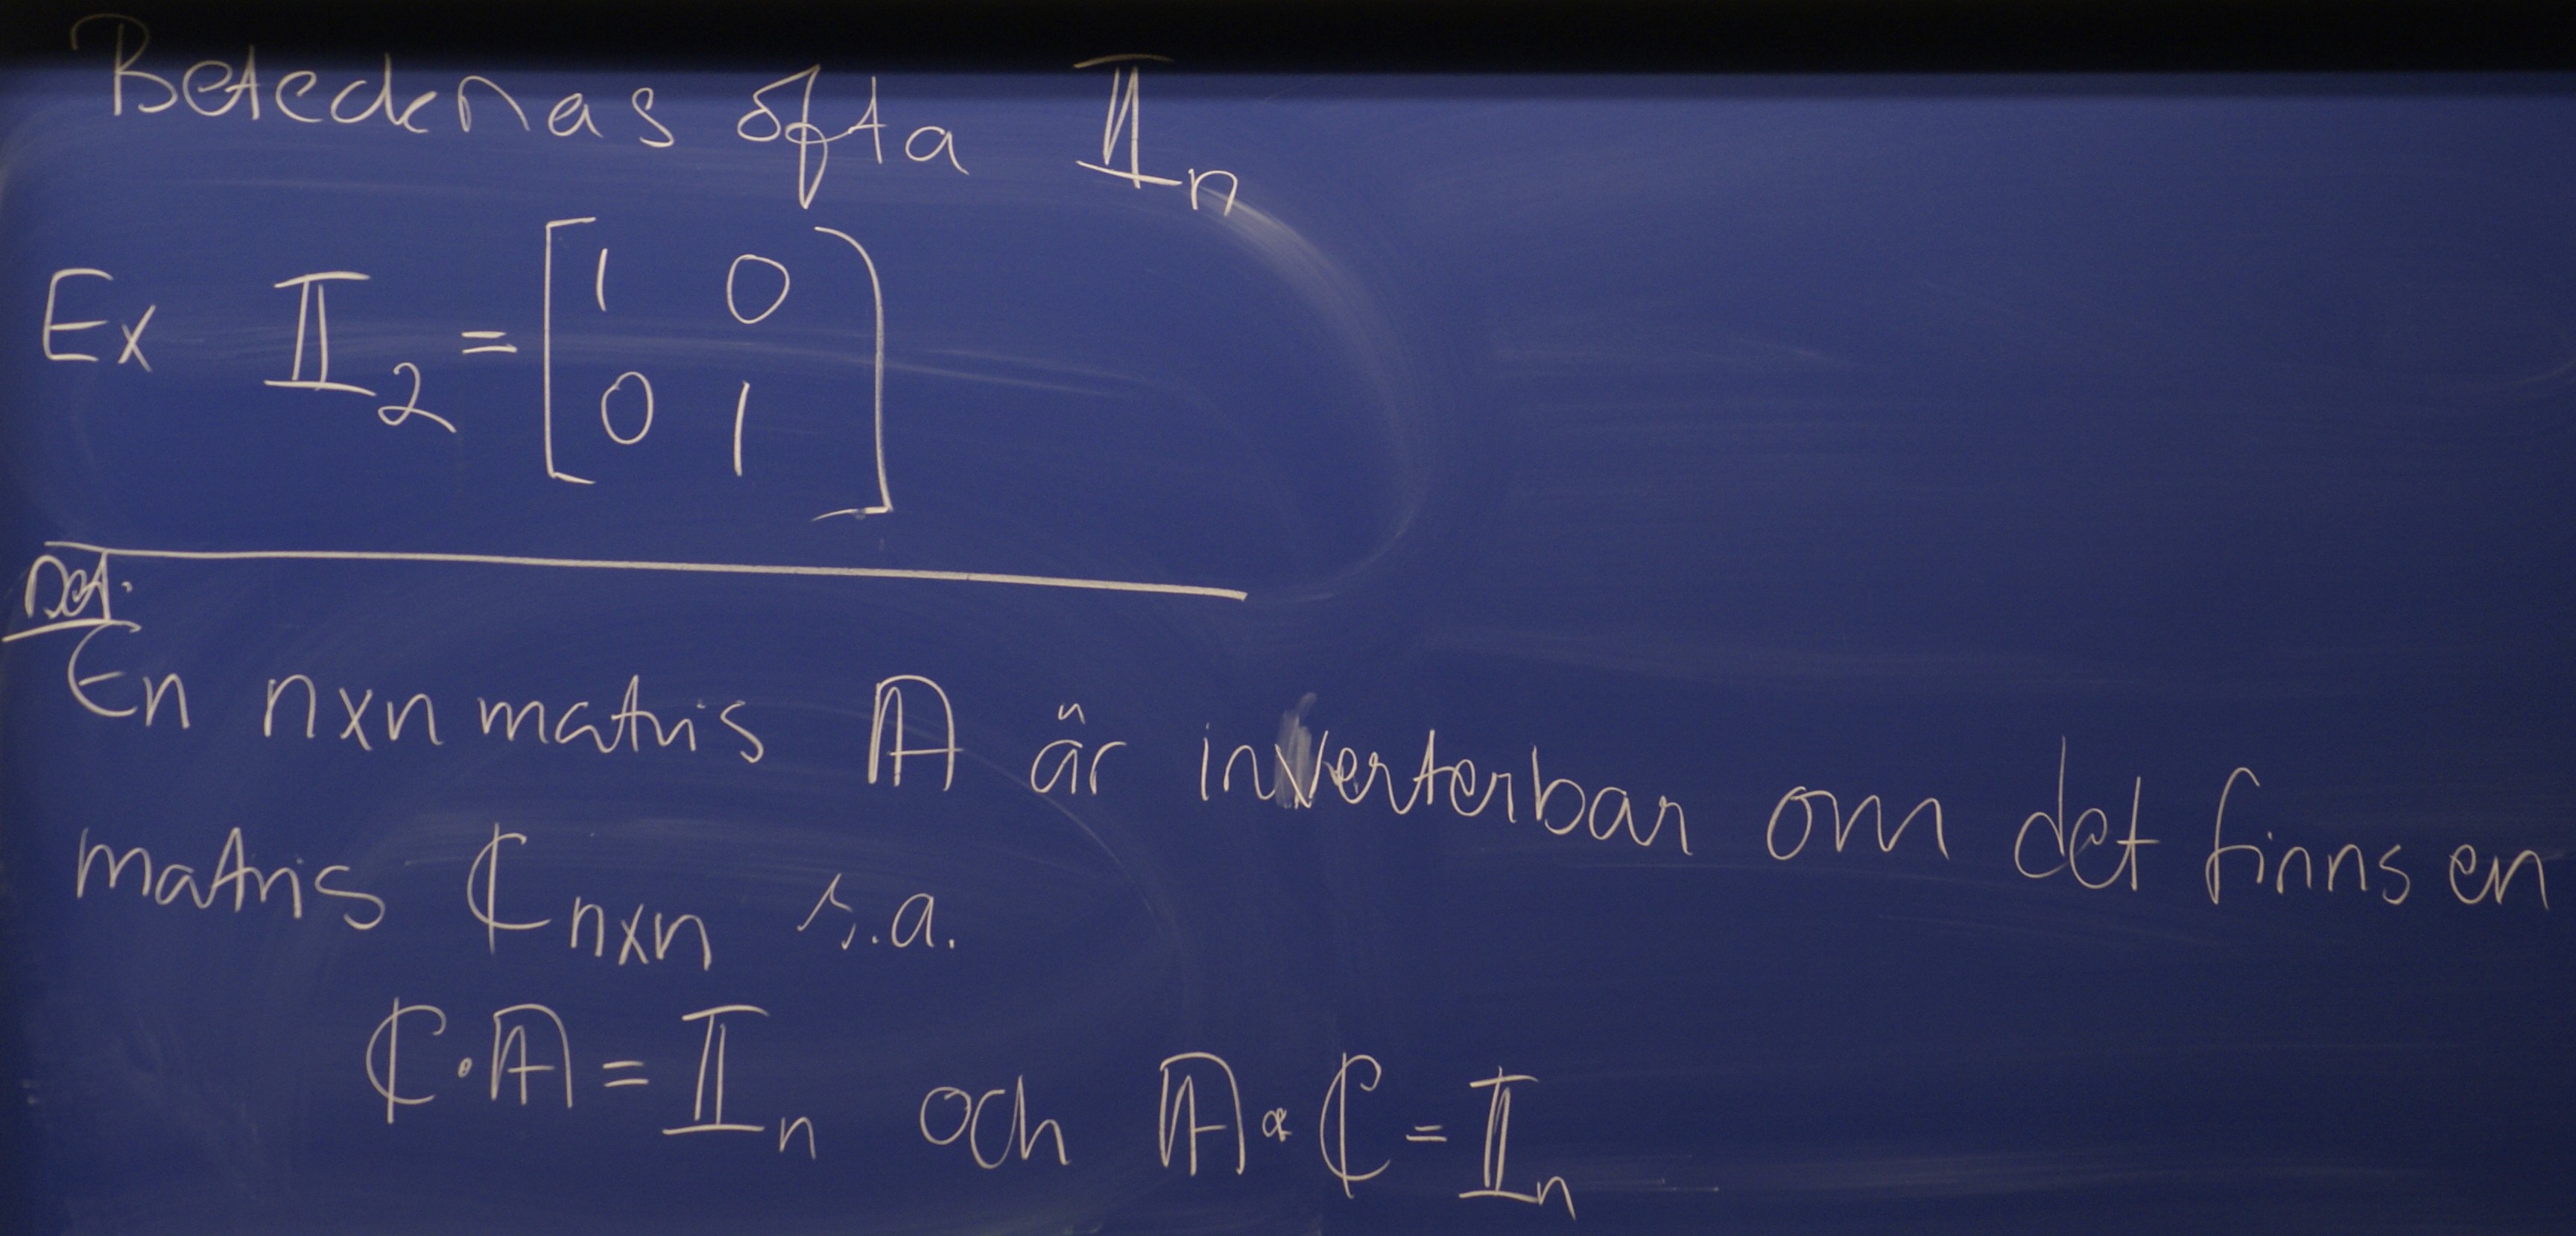 Betecknas ofta 𝕀n
Ex 𝕀2 = [1 0
0 1]
Def.
En n×n matris 𝔸 är inverterbar om det finns en
matris ℂn×n s.a.
ℂ·𝔸 = 𝕀n och 𝔸·ℂ = 𝕀n